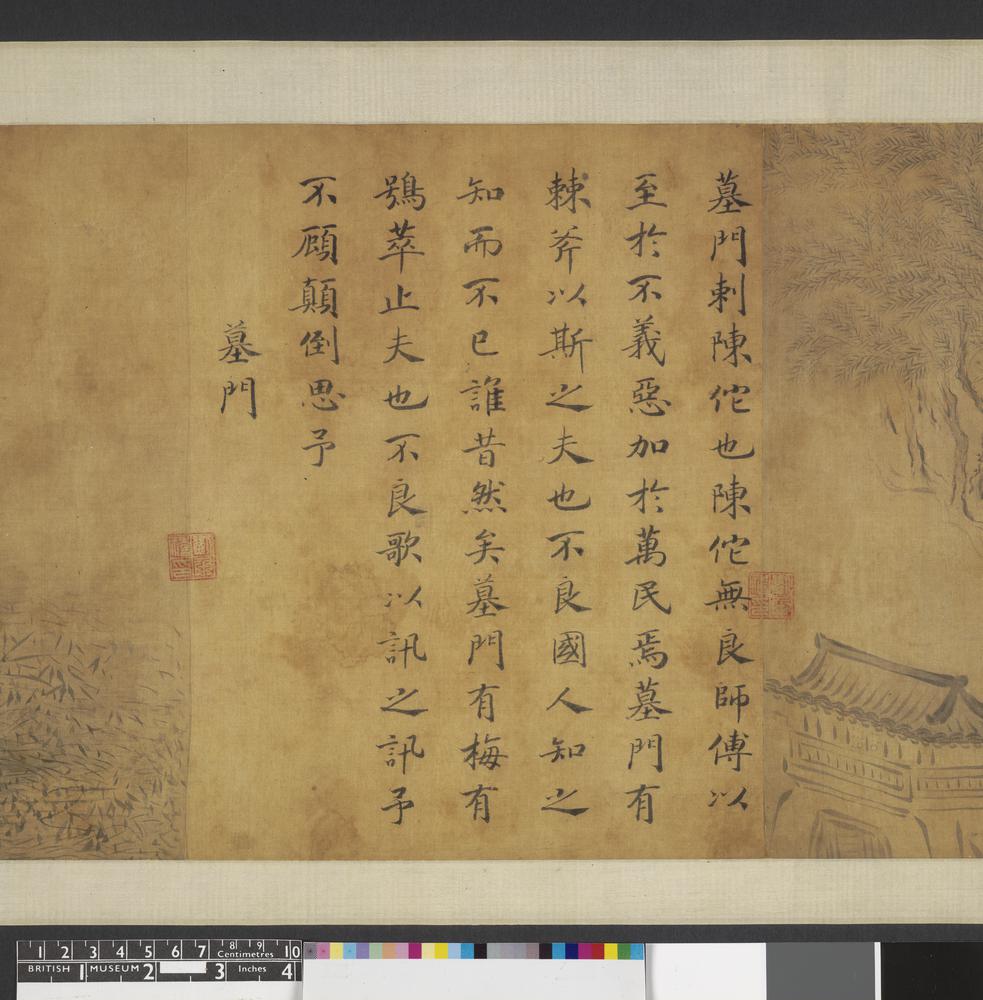 墓門刺陳佗也陳佗無良師傅以
至於不義惡加於萬民焉墓門有
棘斧以斯之夫也不良國人知之
知而不已誰昔然矣墓門有梅有
鴞萃止夫也不良歌以訊之訊予
不顧顛倒思予
墓門
1 2 3 4 5 6 7 8 9 10
Centimetres
BRITISH 1 MUSEUM 2 3 Inches 4